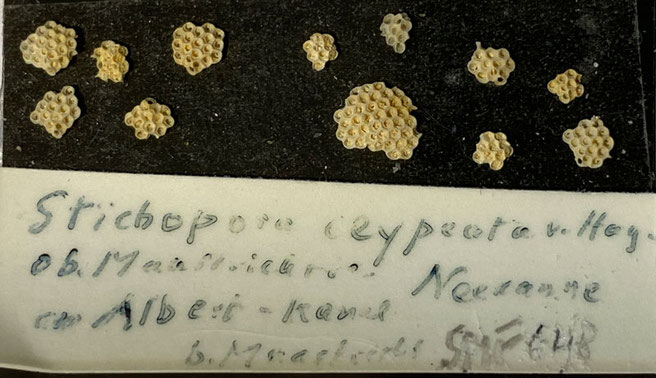 Stichopora clypeata v. Hag.
ob. Maastricht
Neercanne
am Albert-Kanal
b. Maastricht SMF 648